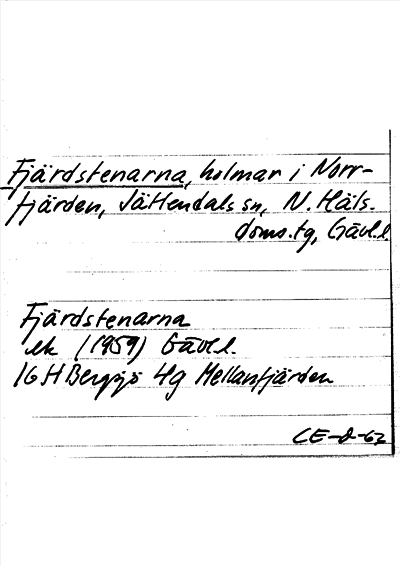 Fjärdstenarna, holmar i Norr-
fjärden, Jättendals sn, N. Häls.
doms.tg, Gävl.l.
Fjärdstenarna
ek (1959) Gävl.l.
16 H Bergsjö 4g Mellanfjärden
CE-D-63